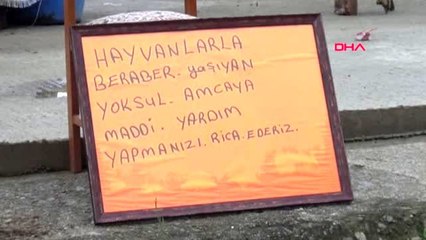 DHA
HAYVANLARLA
BERABER. yaşıyan
YOKSUL. AMCAYA
MADDİ. YARDIM
YAPMANIZI. RİCA. EDERİZ.